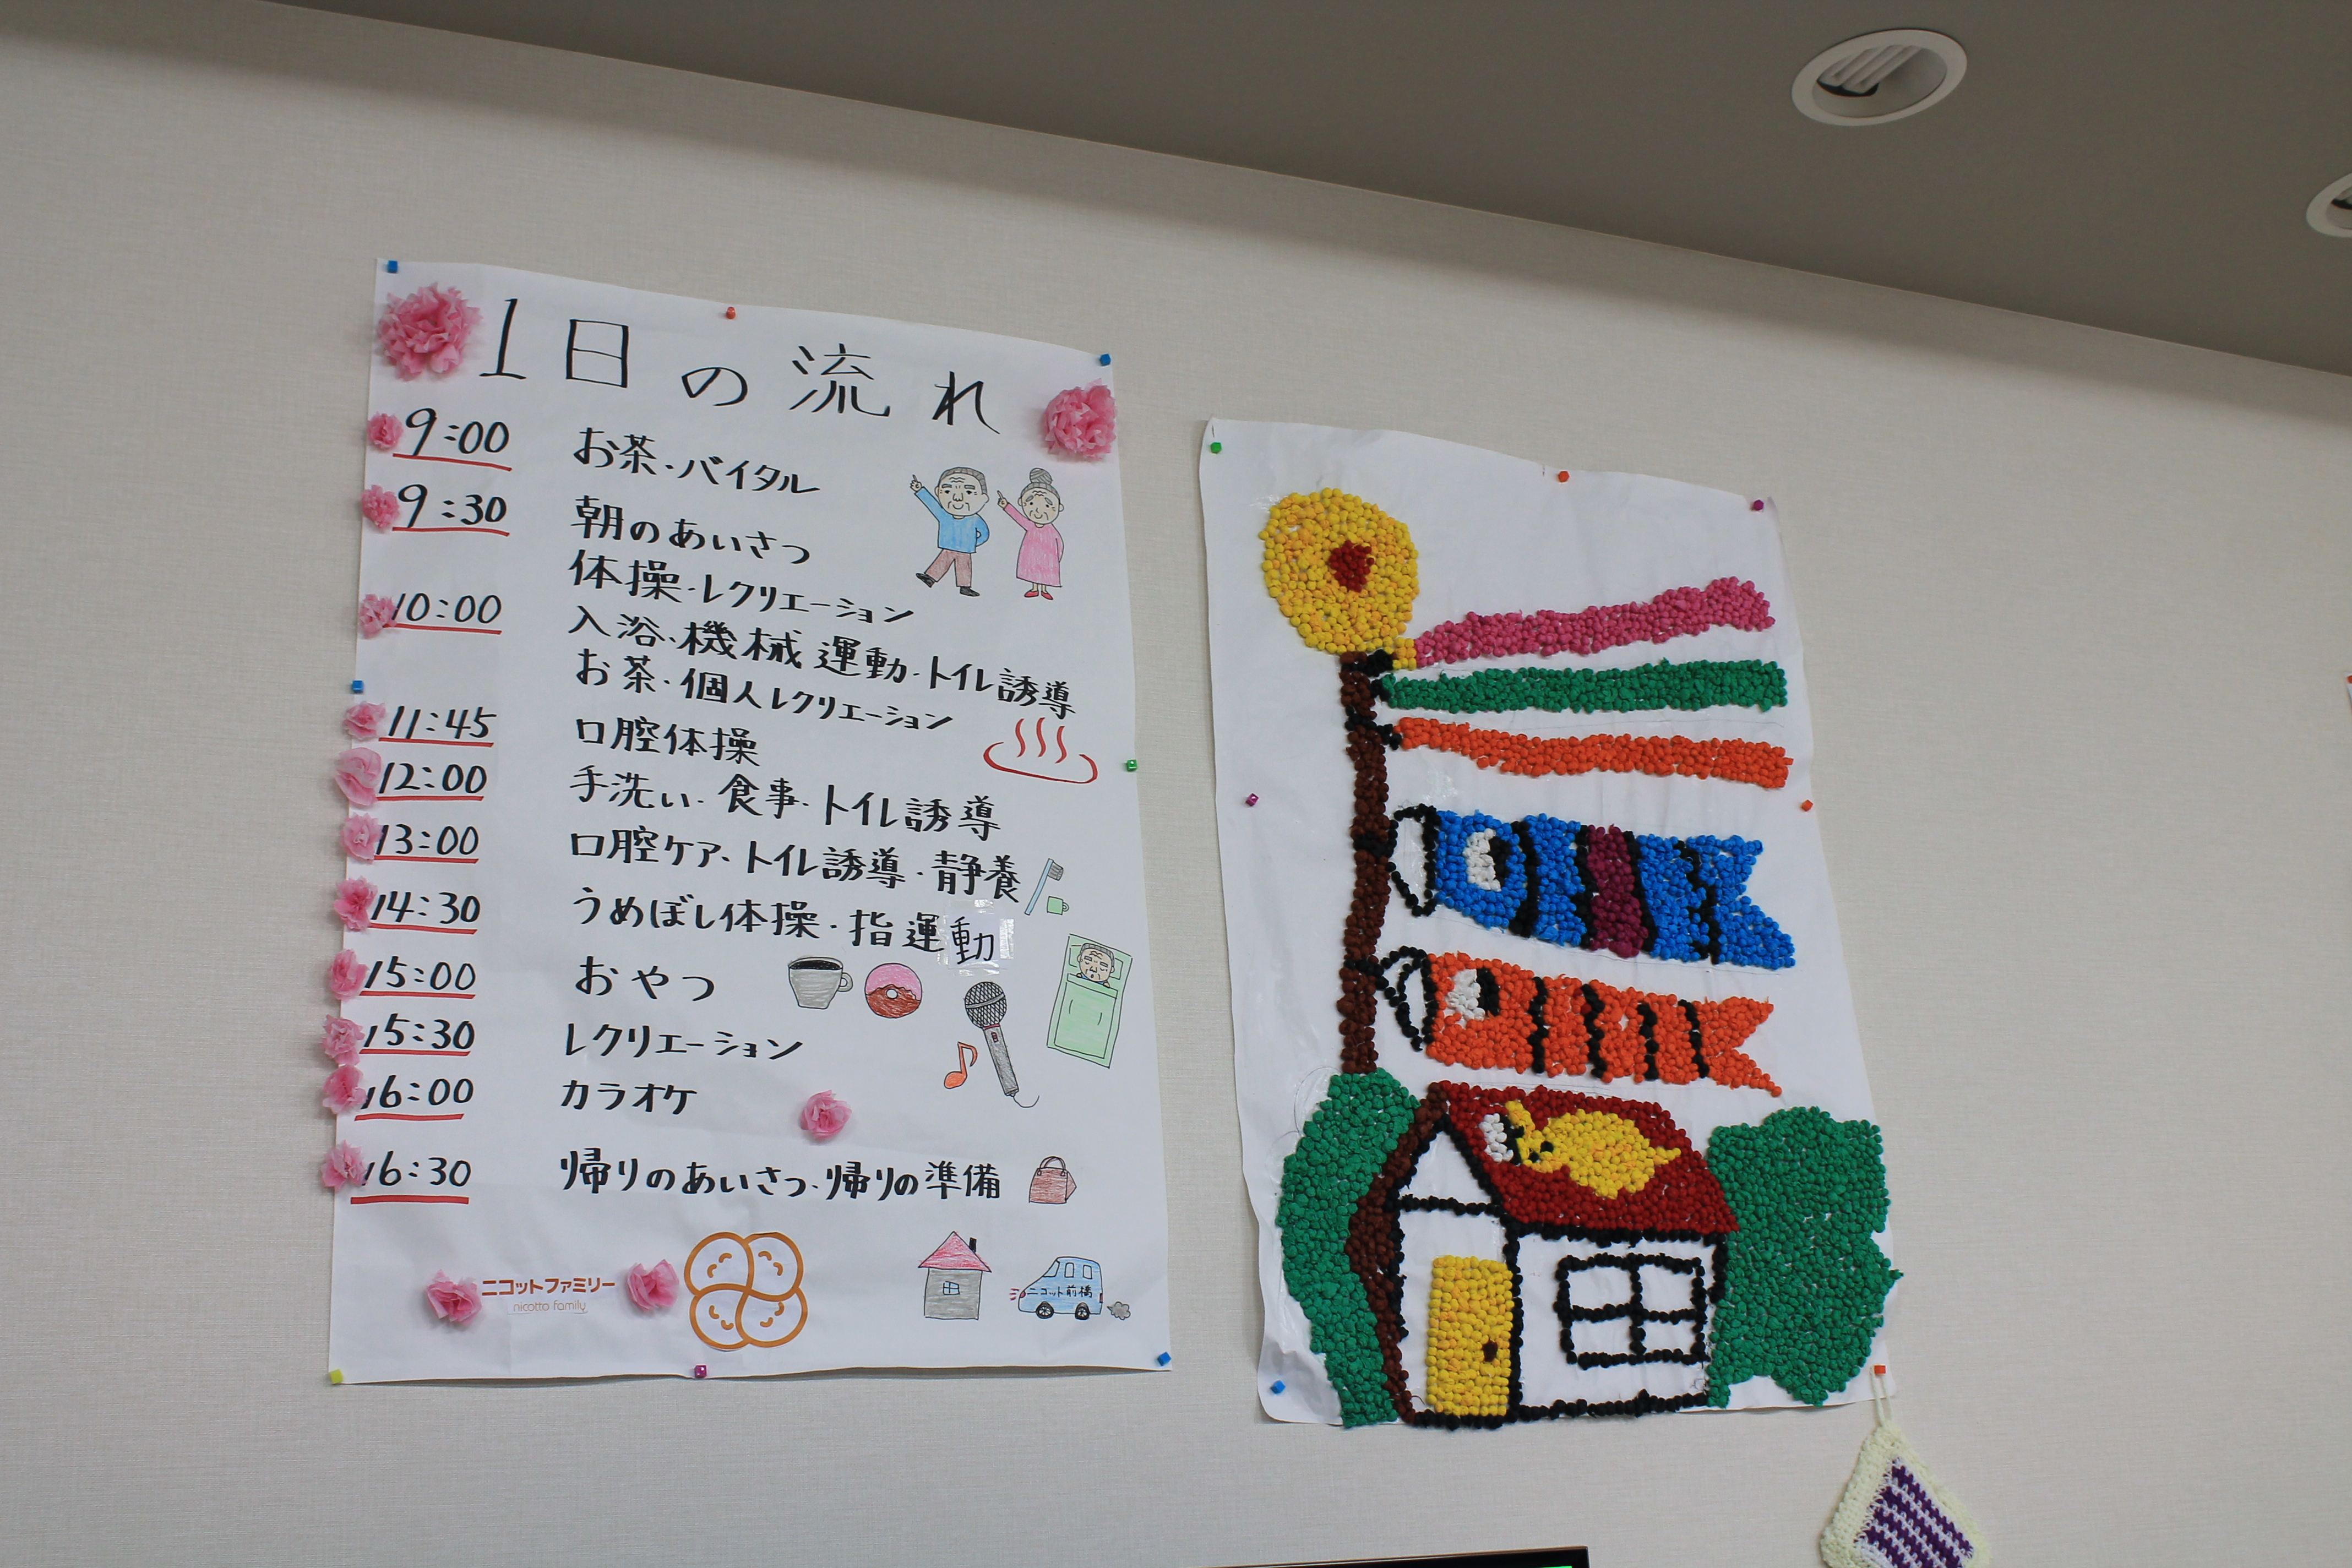 1日の流れ
9:00 お茶・バイタル
9:30 朝のあいさつ
体操・レクリエーション
10:00 入浴・機械運動・トイレ誘導
お茶・個人レクリエーション
11:45 口腔体操
12:00 手洗い・食事・トイレ誘導
13:00 口腔ケア・トイレ誘導・静養
14:30 うめぼし体操・指運動
15:00 おやつ
15:30 レクリエーション
16:00 カラオケ
16:30 帰りのあいさつ・帰りの準備
ニコットファミリー
nicotto family
ニコット前橋